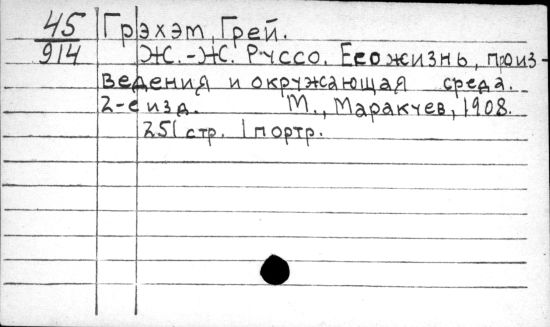 45 Грэхэм, Грей.
914 Ж.-Ж. Руссо. Его жизнь, произ-
ведения и окружающая среда.
2-е изд. М., Маракчев, 1908.
251 стр. 1 портр.